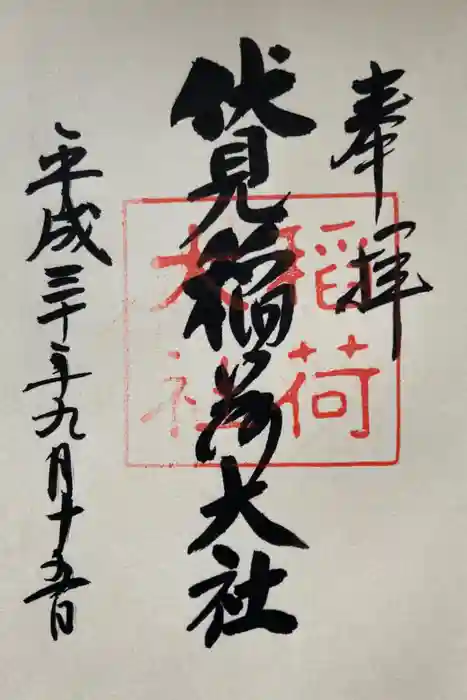 奉拝
伏見稲荷大社
平成三十年九月十五日
稲荷
大社